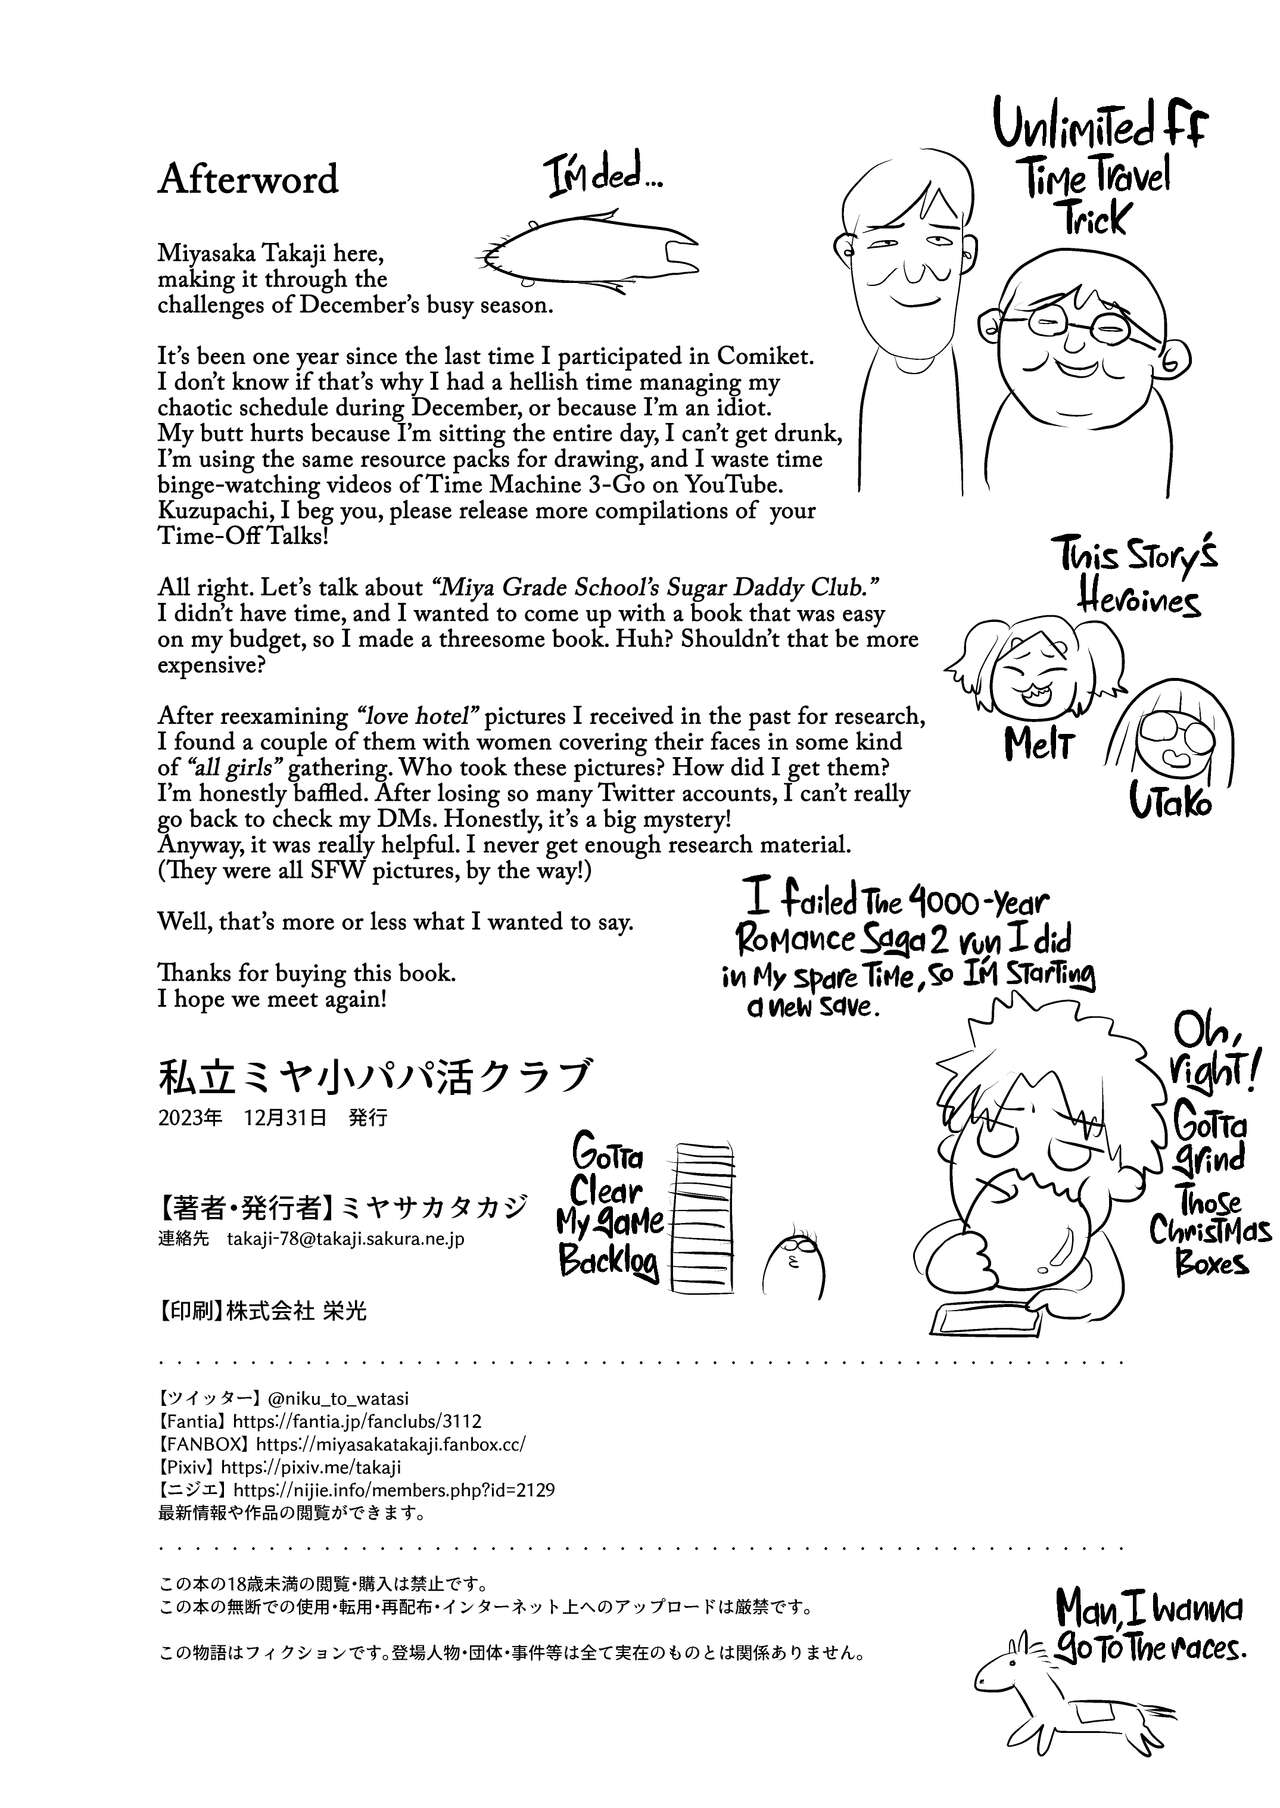 Afterword
I'm ded...
Unlimited ff
Time Travel
Trick
Miyasaka Takaji here,
making it through the
challenges of December's busy season.
It's been one year since the last time I participated in Comiket.
I don't know if that's why I had a hellish time managing my
chaotic schedule during December, or because I'm an idiot.
My butt hurts because I'm sitting the entire day, I can't get drunk,
I'm using the same resource packs for drawing, and I waste time
binge-watching videos of Time Machine 3-Go on YouTube.
Kuzupachi, I beg you, please release more compilations of your
Time-Off Talks!
This Story's
Heroines
Melt
Utako
All right. Let's talk about “Miya Grade School's Sugar Daddy Club.”
I didn't have time, and I wanted to come up with a book that was easy
on my budget, so I made a threesome book. Huh? Shouldn't that be more
expensive?
After reexamining “love hotel” pictures I received in the past for research,
I found a couple of them with women covering their faces in some kind
of “all girls” gathering. Who took these pictures? How did I get them?
I'm honestly baffled. After losing so many Twitter accounts, I can't really
go back to check my DMs. Honestly, it's a big mystery!
Anyway, it was really helpful. I never get enough research material.
(They were all SFW pictures, by the way!)
Well, that's more or less what I wanted to say.
Thanks for buying this book.
I hope we meet again!
I failed the 4000-year
Romance Saga 2 run I did
in my spare time, so I'm starting
a new save.
Oh,
right!
Gotta
grind
Those
Christmas
Boxes
私立ミヤ小パパ活クラブ
2023年　12月31日　発行
Gotta
Clear
My game
Backlog
【著者・発行者】ミヤサカタカジ
連絡先　takaji-78@takaji.sakura.ne.jp
【印刷】株式会社 栄光
【ツイッター】@niku_to_watasi
【Fantia】https://fantia.jp/fanclubs/3112
【FANBOX】https://miyasakatakaji.fanbox.cc/
【Pixiv】https://pixiv.me/takaji
【ニジエ】https://nijie.info/members.php?id=2129
最新情報や作品の閲覧ができます。
この本の18歳未満の閲覧・購入は禁止です。
この本の無断での使用・転用・再配布・インターネット上へのアップロードは厳禁です。
この物語はフィクションです。登場人物・団体・事件等は全て実在のものとは関係ありません。
Man, I wanna
go to the races.